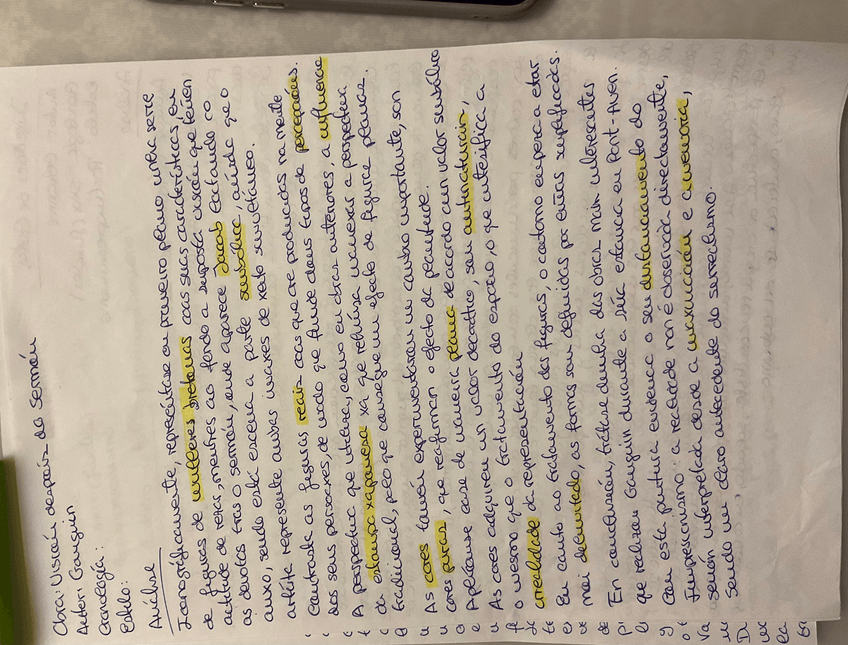 Obra: Visión despois do Sermón
Autor: Gauguin
Cronoloxía:
Estilo:
Análise
Iconograficamente, represéntase en primeiro plano unha serie
de figuras de mulleres bretonas coas súas características, en
actitude de rezar, mentres ao fondo a suposta visión que teñen
as devotas tras o sermón, onde aparece Jacob loitando co
anxo, sendo esta escena a parte simbólica, aínda que o
artista represente ambas imaxes de xeito simultáneo.
Contrasta as figuras reais coas que are producidas na mente
dos seus personaxes, de modo que funde dous tipos de percepcións.
A perspectiva que utiliza, como en obras anteriores, a influencia
da estampa xaponesa xa que rehúsa manexar a perspectiva
tradicional, polo que consegue un efecto de figura plana.
As cores tamén experimentaron un cambio importante, son
cores puras, que reafirman o efecto de planitude.
Aplícanse case de maneira plana de acordo cun valor simbólico
As cores adquiren un valor decorativo, son antinaturais,
o mesmo que o tratamento do espazo, o que intensifica a
irrealidade da representación
En canto ao tratamento das figuras, o contorno empeza a estar
moi delimitado, as formas son definidas por esas superficies.
En conclusión, trátase dunha das obras máis interesantes
que realizou Gauguin durante a súa estancia en Pont-Aven.
Con esta pintura evidencia o seu distanciamento do
Impresionismo: a realidade non é observada directamente,
senón interpretada desde a imaxinación e a memoria,
sendo un claro antecedente do surrealismo.